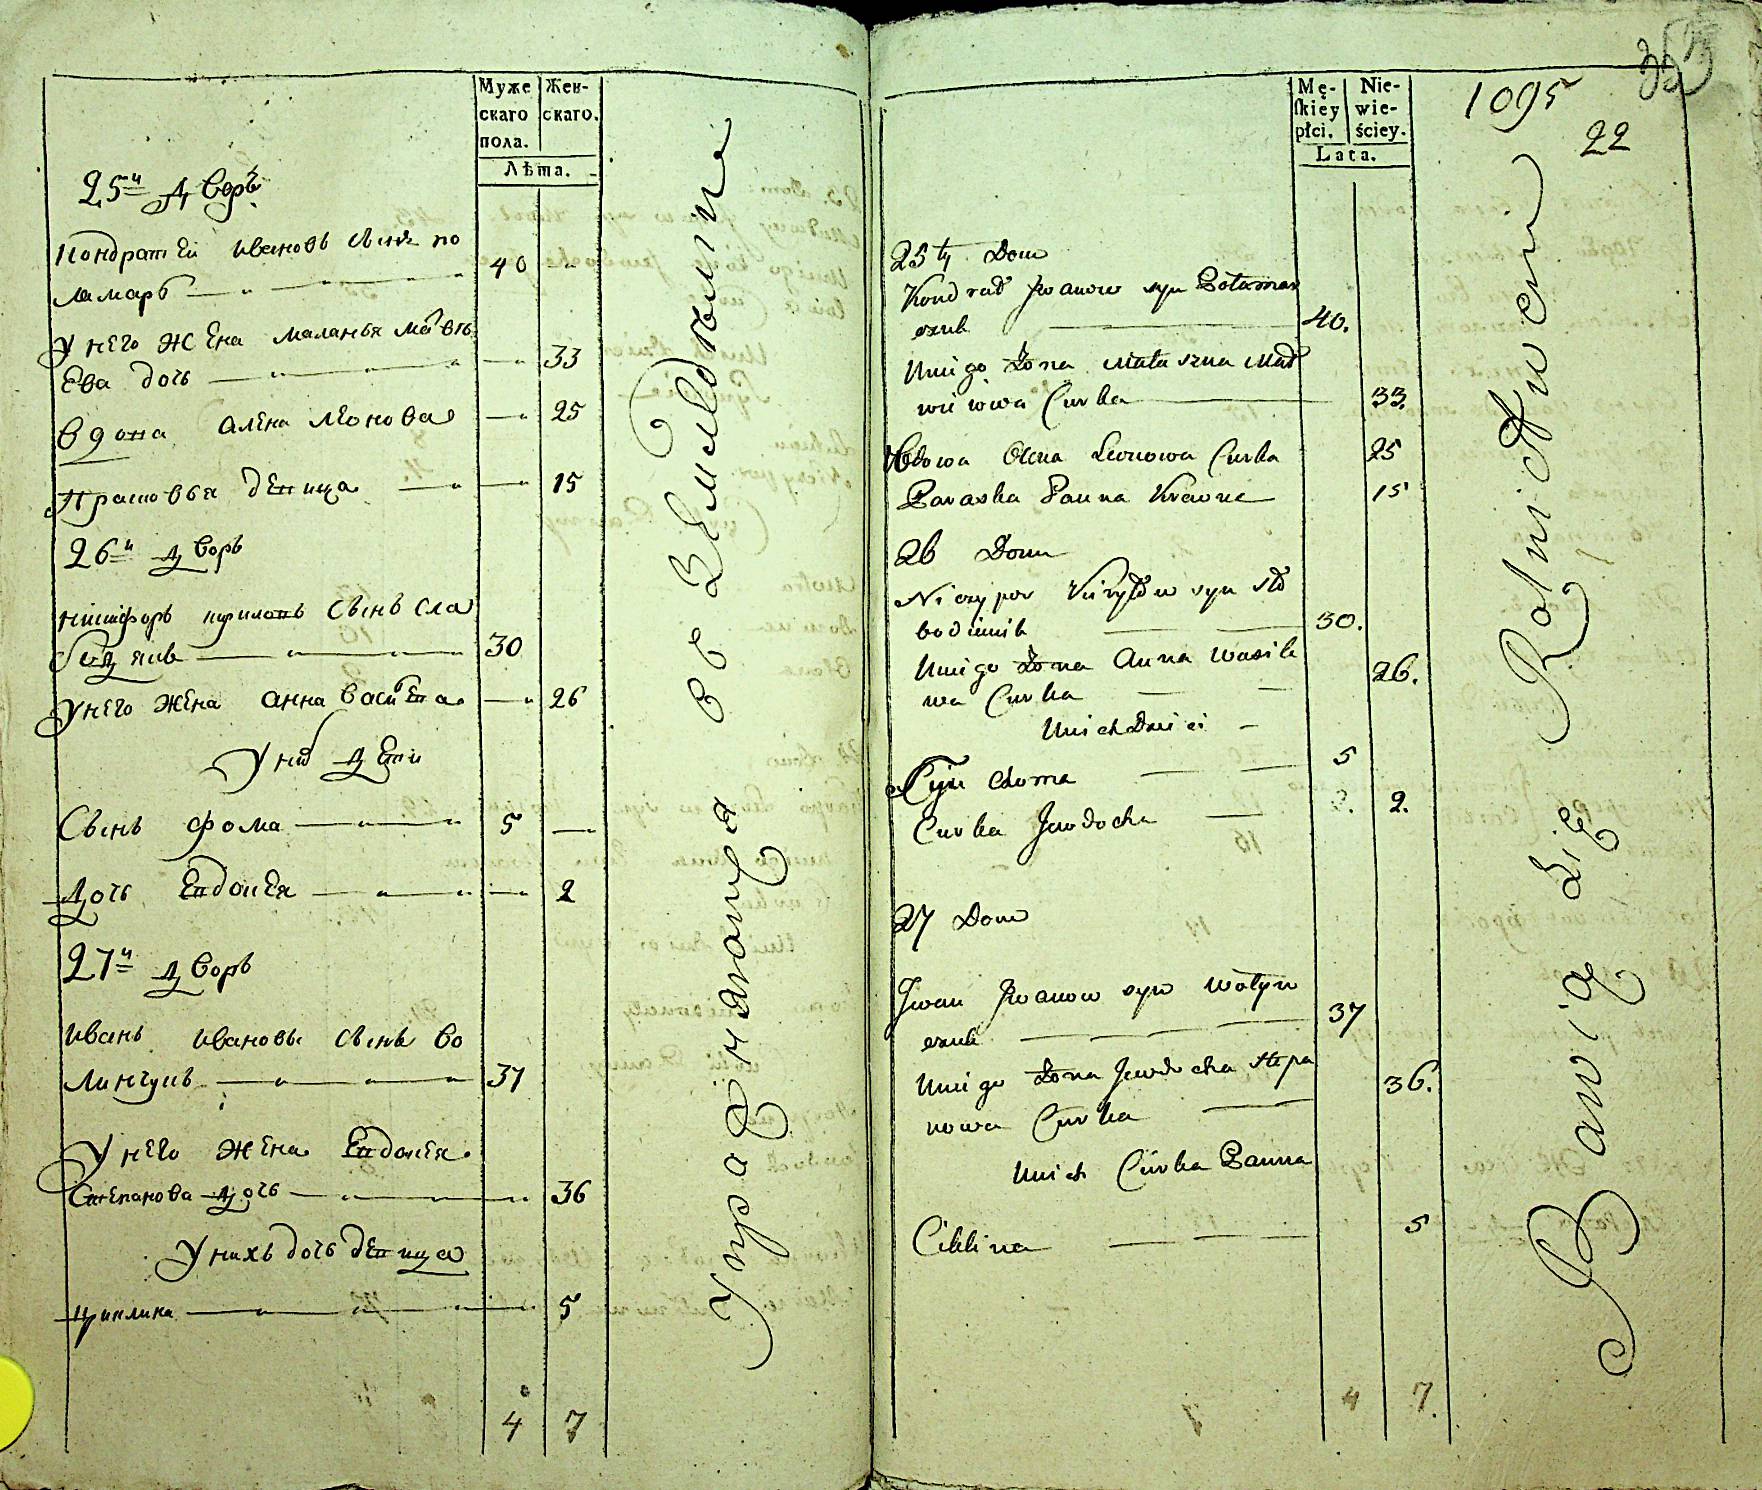 Муже
скаго
пола.
Жен-
скаго.
Лѣта.
25й Дворъ
Кондратей Ивановъ сынъ по
ламаръ 40
У него жена маланья матвѣ
ева дочь 33
вдова алена леонова 25
Прасковья девица 15
26й Дворъ
Никифоръ кириловъ сынъ сла
бодзянъ 30
У него жена анна васильева 26
У них дети
Сынъ фома 5
Дочь Евдокея 2
27й Дворъ
Иванъ Ивановъ сынъ во
линчукъ 37
У него жена Евдокея
Степанова дочь 36
У нихъ дочь девица
Цкилина 5
4 7
Упражняются в земледелии
Mę-
skiey
płci.
Nie-
wie-
ściey.
Lata.
1095
22
25ty Dom
Kondrad Jwanow syn Połamar
czuk 40.
U niego Żona Małaszna Mad
wiiowa Curka 33.
Wdowa Olena Leonowa Curka 25
Paraska Panna Krewna 15
26 Dom
Niczypor Kiryłow syn Sło
bodianik 30.
U niego Żona Anna Wasile
wa Curka 26.
U nich Dzieci
Syn Choma 5
Curka Jewdocha 2.
27 Dom
Jwan Jwanow syn Wołyn
czuk 37
U niego Żona Jewdocha Stepa
nowa Curka 36.
U nich Curka Panna
Ciklina 5
4 7.
Bawią się Rolnictwem